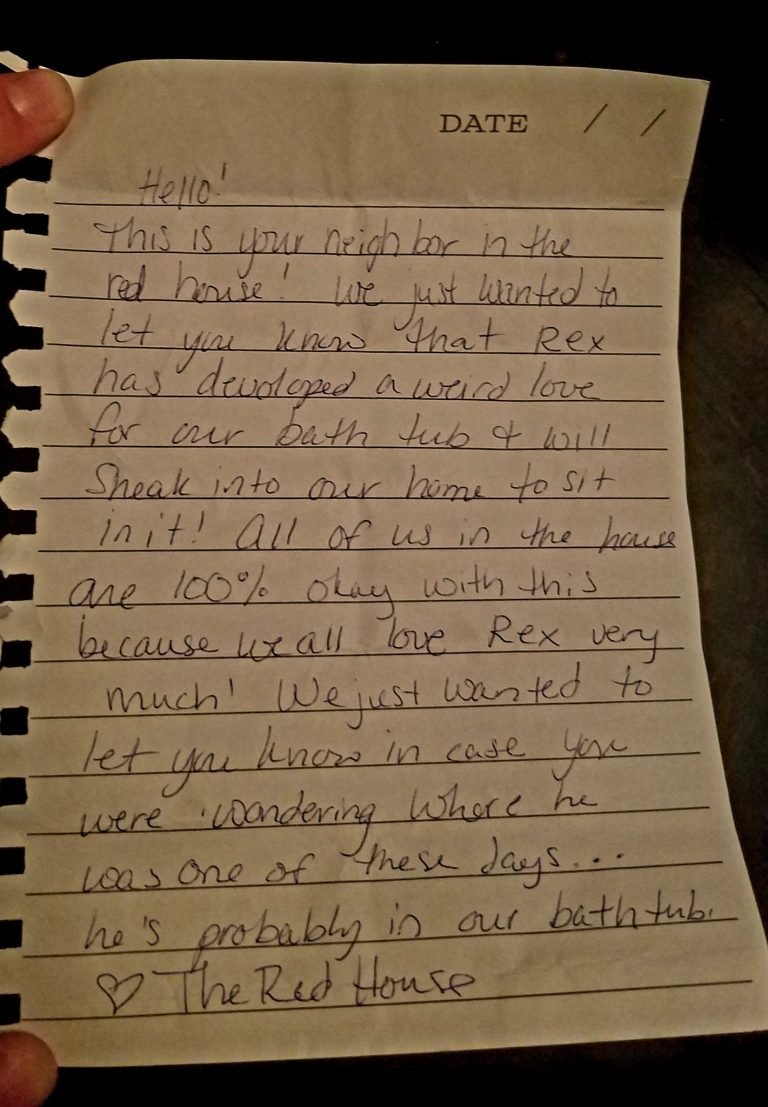 DATE / /
Hello!
This is your neighbor in the
red house! We just wanted to
let you know that Rex
has devoloped a weird love
for our bath tub & will
Sneak into our home to sit
in it! All of us in the house
are 100% okay with this
because we all love Rex very
much! We just wanted to
let you know in case you
were wondering where he
was one of these days...
he's probably in our bath tub.
♡ The Red House